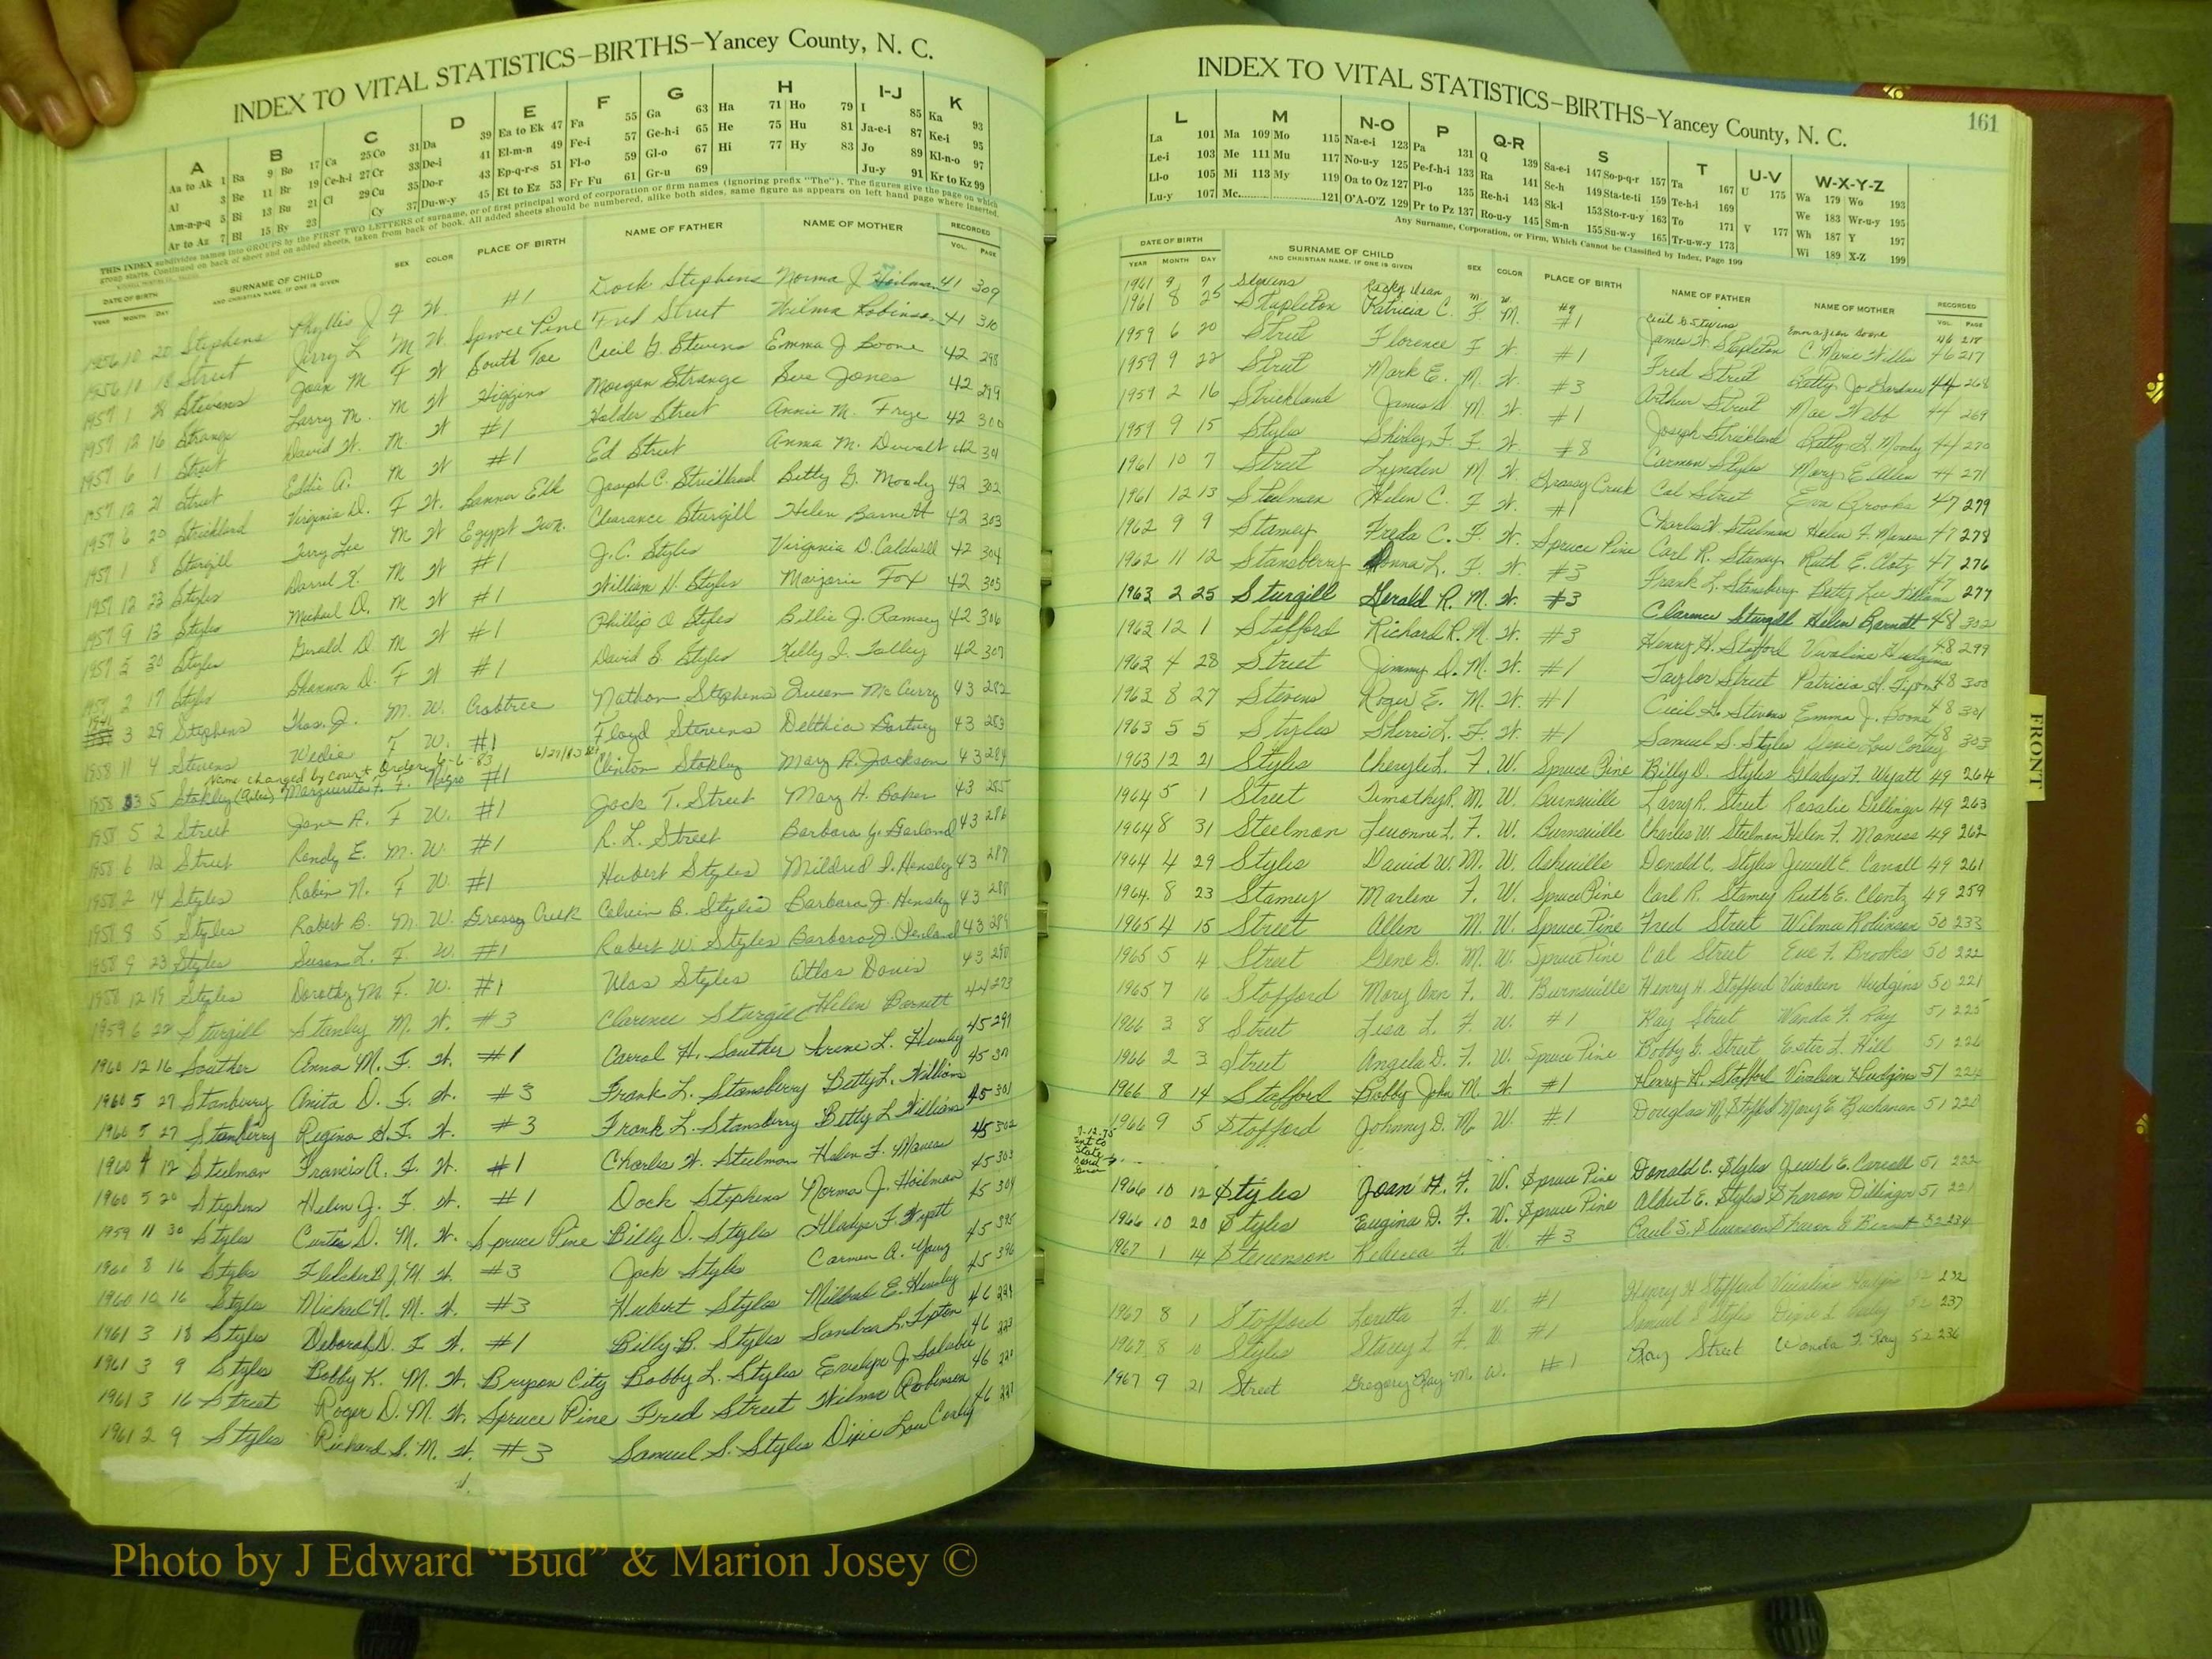 INDEX TO VITAL STATISTICS–BIRTHS–Yancey County, N. C.
A B C D E F G H I-J K
Aa to Ak 1 Ba 9 Bo 17 Ca 25 Co 31 Da 39 Ea to Ek 47 Fa 55 Ga 63 Ha 71 Ho 79 I 85 Ka 93
Al 3 Be 11 Br 19 Ce-h-i 27 Cr 33 De-i 41 El-m-n 49 Fe-i 57 Ge-h-i 65 He 75 Hu 81 Ja-e-i 87 Ke-i 95
Am-n-p-q 5 Bi 13 Bu 21 Cl 29 Cu 35 Do-r 43 Ep-q-r-s 51 Fl-o 59 Gl-o 67 Hi 77 Hy 83 Jo 89 Kl-n-o 97
Ar to Az 7 Bl 15 By 23 Cy 37 Du-w-y 45 Et to Ez 53 Fr Fu 61 Gr-u 69 Ju-y 91 Kr to Kz 99
THIS INDEX subdivides names into GROUPS by the FIRST TWO LETTERS of surname, or of first principal word of corporation or firm names (ignoring prefix "The"). The figures give the page on which
group starts. Continued on back of sheet and on added sheets, taken from back of book. All added sheets should be numbered, alike both sides, same figure as appears on left hand page where inserted.
DATE OF BIRTH SURNAME OF CHILD SEX COLOR PLACE OF BIRTH NAME OF FATHER NAME OF MOTHER RECORDED
YEAR MONTH DAY AND CHRISTIAN NAME, IF ONE IS GIVEN VOL. PAGE
1956 10 20 Stephens Phyllis J F W. #1 Dock Stephens Norma J Hoilman 41 309
1956 11 18 Street Jerry L M W. Spruce Pine Fred Street Wilma Robinson 41 310
1957 1 8 Stevens Joan M. F W South Toe Cecil G Stevens Emma J Boone 42 298
1957 12 16 Strange Larry M. M W Higgins Morgan Strange Sue Jones 42 299
1957 6 1 Street David W. M. W #1 Holder Street Annie M. Frye 42 300
1957 12 21 Street Eddie A. M W #1 Ed Street Anna M. Duvalt 42 301
1957 6 20 Strickland Virginia D. F W. Banner Elk Joseph C. Strickland Betty G. Moody 42 302
1957 1 8 Sturgill Terry Lee M W Egypt Twn. Clearance Sturgill Helen Barnett 42 303
1957 12 23 Styles Darrel K. M W #1 J.C. Styles Virginia D. Caldwell 42 304
1957 9 13 Styles Michael D. M W #1 William N. Styles Marjorie Fox 42 305
1957 5 30 Styles Gerald D M W #1 Phillip O Styles Billie J. Ramsey 42 306
2 17 Styles Shannon D. F W #1 David E. Styles Kelly J. Talley 42 307
3 29 Stephens Thos. J. M. W. Crabtree Nathan Stephens Queen McCurry 43 282
1958 11 4 Stevens Wedia F W. #1 Floyd Stevens Delthia Gortney 43 283
Name changed by court order 6-6-83
1958 3 5 Stokley (Giles) Marguerite F. F. Negro #1 Clinton Stokley Mary R. Jackson 43 284
1958 5 2 Street Jane A. F W. #1 Jack T. Street Mary H. Baker 43 285
1958 6 12 Street Randy E. M. W. #1 R. L. Street Barbara G. Garland 43 286
1958 2 14 Styles Robin N. F W. #1 Hubert Styles Mildred I. Hensley 43 287
1958 8 5 Styles Robert B. M. W. Grassy Creek Calvin B. Styles Barbara J. Hensley 43 288
1958 9 23 Styles Susan L. F. W. #1 Robert W. Styles Barbara J. Penland 43 289
1958 12 19 Styles Dorothy M F. W. #1 Ulas Styles Atlas Davis 43 290
1959 6 22 Sturgill Stanley M. W. #3 Clarence Sturgill Helen Barnett 44 273
1960 12 16 Souther Anna M. F. W. #1 Carrol H. Souther Irene L. Hensley 45 297
1960 5 27 Stanberry Anita D. F. W. #3 Frank L. Stansberry Betty L. Williams 45 30
1960 5 27 Stanberry Regina G. F. W. #3 Frank L. Stansberry Betty L Williams 45 301
1960 4 12 Steelman Francis A. F. W. #1 Charles W. Steelman Helen F. Maness 45 302
1960 5 20 Stephens Helen J. F. W. #1 Dock Stephens Norma J. Hoilman 45 303
1959 11 30 Styles Curtis D. M. W. Spruce Pine Billy D. Styles Gladys F. Wyatt 45 304
1960 8 16 Styles Fletcher B J M. W. #3 Jack Styles Carmen A. Young 45 395
1960 10 16 Styles Michael N. M. W. #3 Hubert Styles Mildred E. Hensley 45 396
1961 3 18 Styles Deborah D. F W. #1 Billy B. Styles Sandra L. Tipton 46 224
1961 3 9 Styles Bobby K. M. W. Bryson City Bobby L. Styles Evelyn J. Salabee 46 223
1961 3 16 Street Roger D. M. W. Spruce Pine Fred Street Wilma Robinson 46 220
1961 2 9 Styles Richard S. M. W. #3 Samuel S. Styles Dixie Lou Conley 46 221
INDEX TO VITAL STATISTICS–BIRTHS–Yancey County, N. C. 161
L M N-O P Q-R S T U-V W-X-Y-Z
La 101 Ma 109 Mo 115 Na-e-i 123 Pa 131 Q 139 Sa-e-i 147 So-p-q-r 157 Ta 167 U 175 Wa 179 Wo 193
Le-i 103 Me 111 Mu 117 No-u-y 125 Pe-f-h-i 133 Ra 141 Sc-h 149 Sta-te-ti 159 Te-h-i 169 We 183 Wr-u-y 195
Ll-o 105 Mi 113 My 119 Oa to Oz 127 Pl-o 135 Re-h-i 143 Sk-l 153 Sto-r-u-y 163 To 171 V 177 Wh 187 Y 197
Lu-y 107 Mc 121 O'A-O'Z 129 Pr to Pz 137 Ro-u-y 145 Sm-n 155 Su-w-y 165 Tr-u-w-y 173 Wi 189 X-Z 199
Any Surname, Corporation, or Firm, Which Cannot be Classified by Index, Page 199
DATE OF BIRTH SURNAME OF CHILD SEX COLOR PLACE OF BIRTH NAME OF FATHER NAME OF MOTHER RECORDED
YEAR MONTH DAY AND CHRISTIAN NAME, IF ONE IS GIVEN VOL. PAGE
1961 9 7 Stevens Ricky Dean M. W. Cecil G Stevens Emma Jean Boone 46 218
1961 8 25 Stapleton Patricia C. F. M. #1 James W. Stapleton C. Marie Willis 46 217
1959 6 20 Street Florence F W. #1 Fred Street Betty Jo Gardner 44 268
1959 9 22 Street Mark E. M. W. #3 Arthur Street Mae Webb 44 269
1959 2 16 Strickland James S M. W. #1 Joseph Strickland Betty G. Moody 44 270
1959 9 15 Styles Shirley F. F. W. #8 Carmon Styles Mary E. Allen 44 271
1961 10 7 Street Lynden M W. Grassy Creek Cal Street Eva Brooks 47 279
1961 12 13 Steelman Helen C. F W. #1 Charles W. Steelman Helen F. Maness 47 278
1962 9 9 Stamey Freda C. F. W. Spruce Pine Carl R. Stamey Ruth E. Clotz 47 276
1962 11 12 Stansberry Donna L. F. W. #3 Frank L. Stansberry Betty Lee Williams 47 277
1963 2 25 Sturgill Gerald R. M. W. #3 Clarence Sturgill Helen Barnett 48 302
1963 12 1 Stafford Richard R. M. W. #3 Henry H. Stafford Vivaline Hudgins 48 299
1963 4 28 Street Jimmy D. M. W. #1 Taylor Street Patricia H. Tipton 48 300
1963 8 27 Stevens Roger E. M. W. #1 Cecil G. Stevens Emma J. Boone 48 301
1963 5 5 Styles Sherri L. F. W. #1 Samuel S. Styles Dixie Lou Conley 48 303
1963 12 21 Styles Cheryle L. F. W. Spruce Pine Billy D. Styles Gladys F. Wyatt 49 264
1964 5 1 Street Timothy R. M. W. Burnsville Larry R. Street Rosalie Dellinger 49 263
1964 8 31 Steelman Levonne L. F. W. Burnsville Charles W. Steelman Helen F. Maness 49 262
1964 4 29 Styles David W. M. W. Asheville Donald C. Styles Jewell E. Carroll 49 261
1964 8 23 Stamey Marlene F. W. Spruce Pine Carl R. Stamey Ruth E. Clontz 49 259
1965 4 15 Street Allen M. W. Spruce Pine Fred Street Wilma Robinson 50 233
1965 5 4 Street Gene G. M. W. Spruce Pine Cal Street Eve F. Brooks 50 222
1965 7 16 Stafford Mary Ann F. W. Burnsville Henry H. Stafford Vivaleen Hudgins 50 221
1966 3 8 Street Lisa L. F. W. #1 Ray Street Wanda F. Ray 51 225
1966 2 3 Street Angela D. F. W. Spruce Pine Bobby G. Street Ester L. Hill 51 226
1966 8 14 Stafford Bobby John M. W #1 Henry H. Stafford Vivaleen Hudgins 51 224
1966 9 5 Stafford Johnny D. M. W. #1 Douglas M. Stafford Mary E. Buchanan 51 220
1966 10 12 Styles Joan H. F. W. Spruce Pine Donald C. Styles Jewel E. Carroll 51 222
1966 10 20 Styles Eugina D. F. W. Spruce Pine Albert E. Styles Sharon Dillinger 51 221
1967 1 14 Stevenson Rebecca F. W. #3 Paul S. Stevenson Sharon 52 234
1967 8 1 Stafford Loretta F. W. #1 Henry H Stafford Vivaline Hudgins 52 232
1967 8 10 Styles Stacey L F. W. #1 Samuel S Styles Dixie L Conley 52 237
1967 9 21 Street Gregory Ray M. W. #1 Ray Street Wanda F. Ray 52 236
FRONT
Photo by J Edward “Bud” & Marion Josey ©